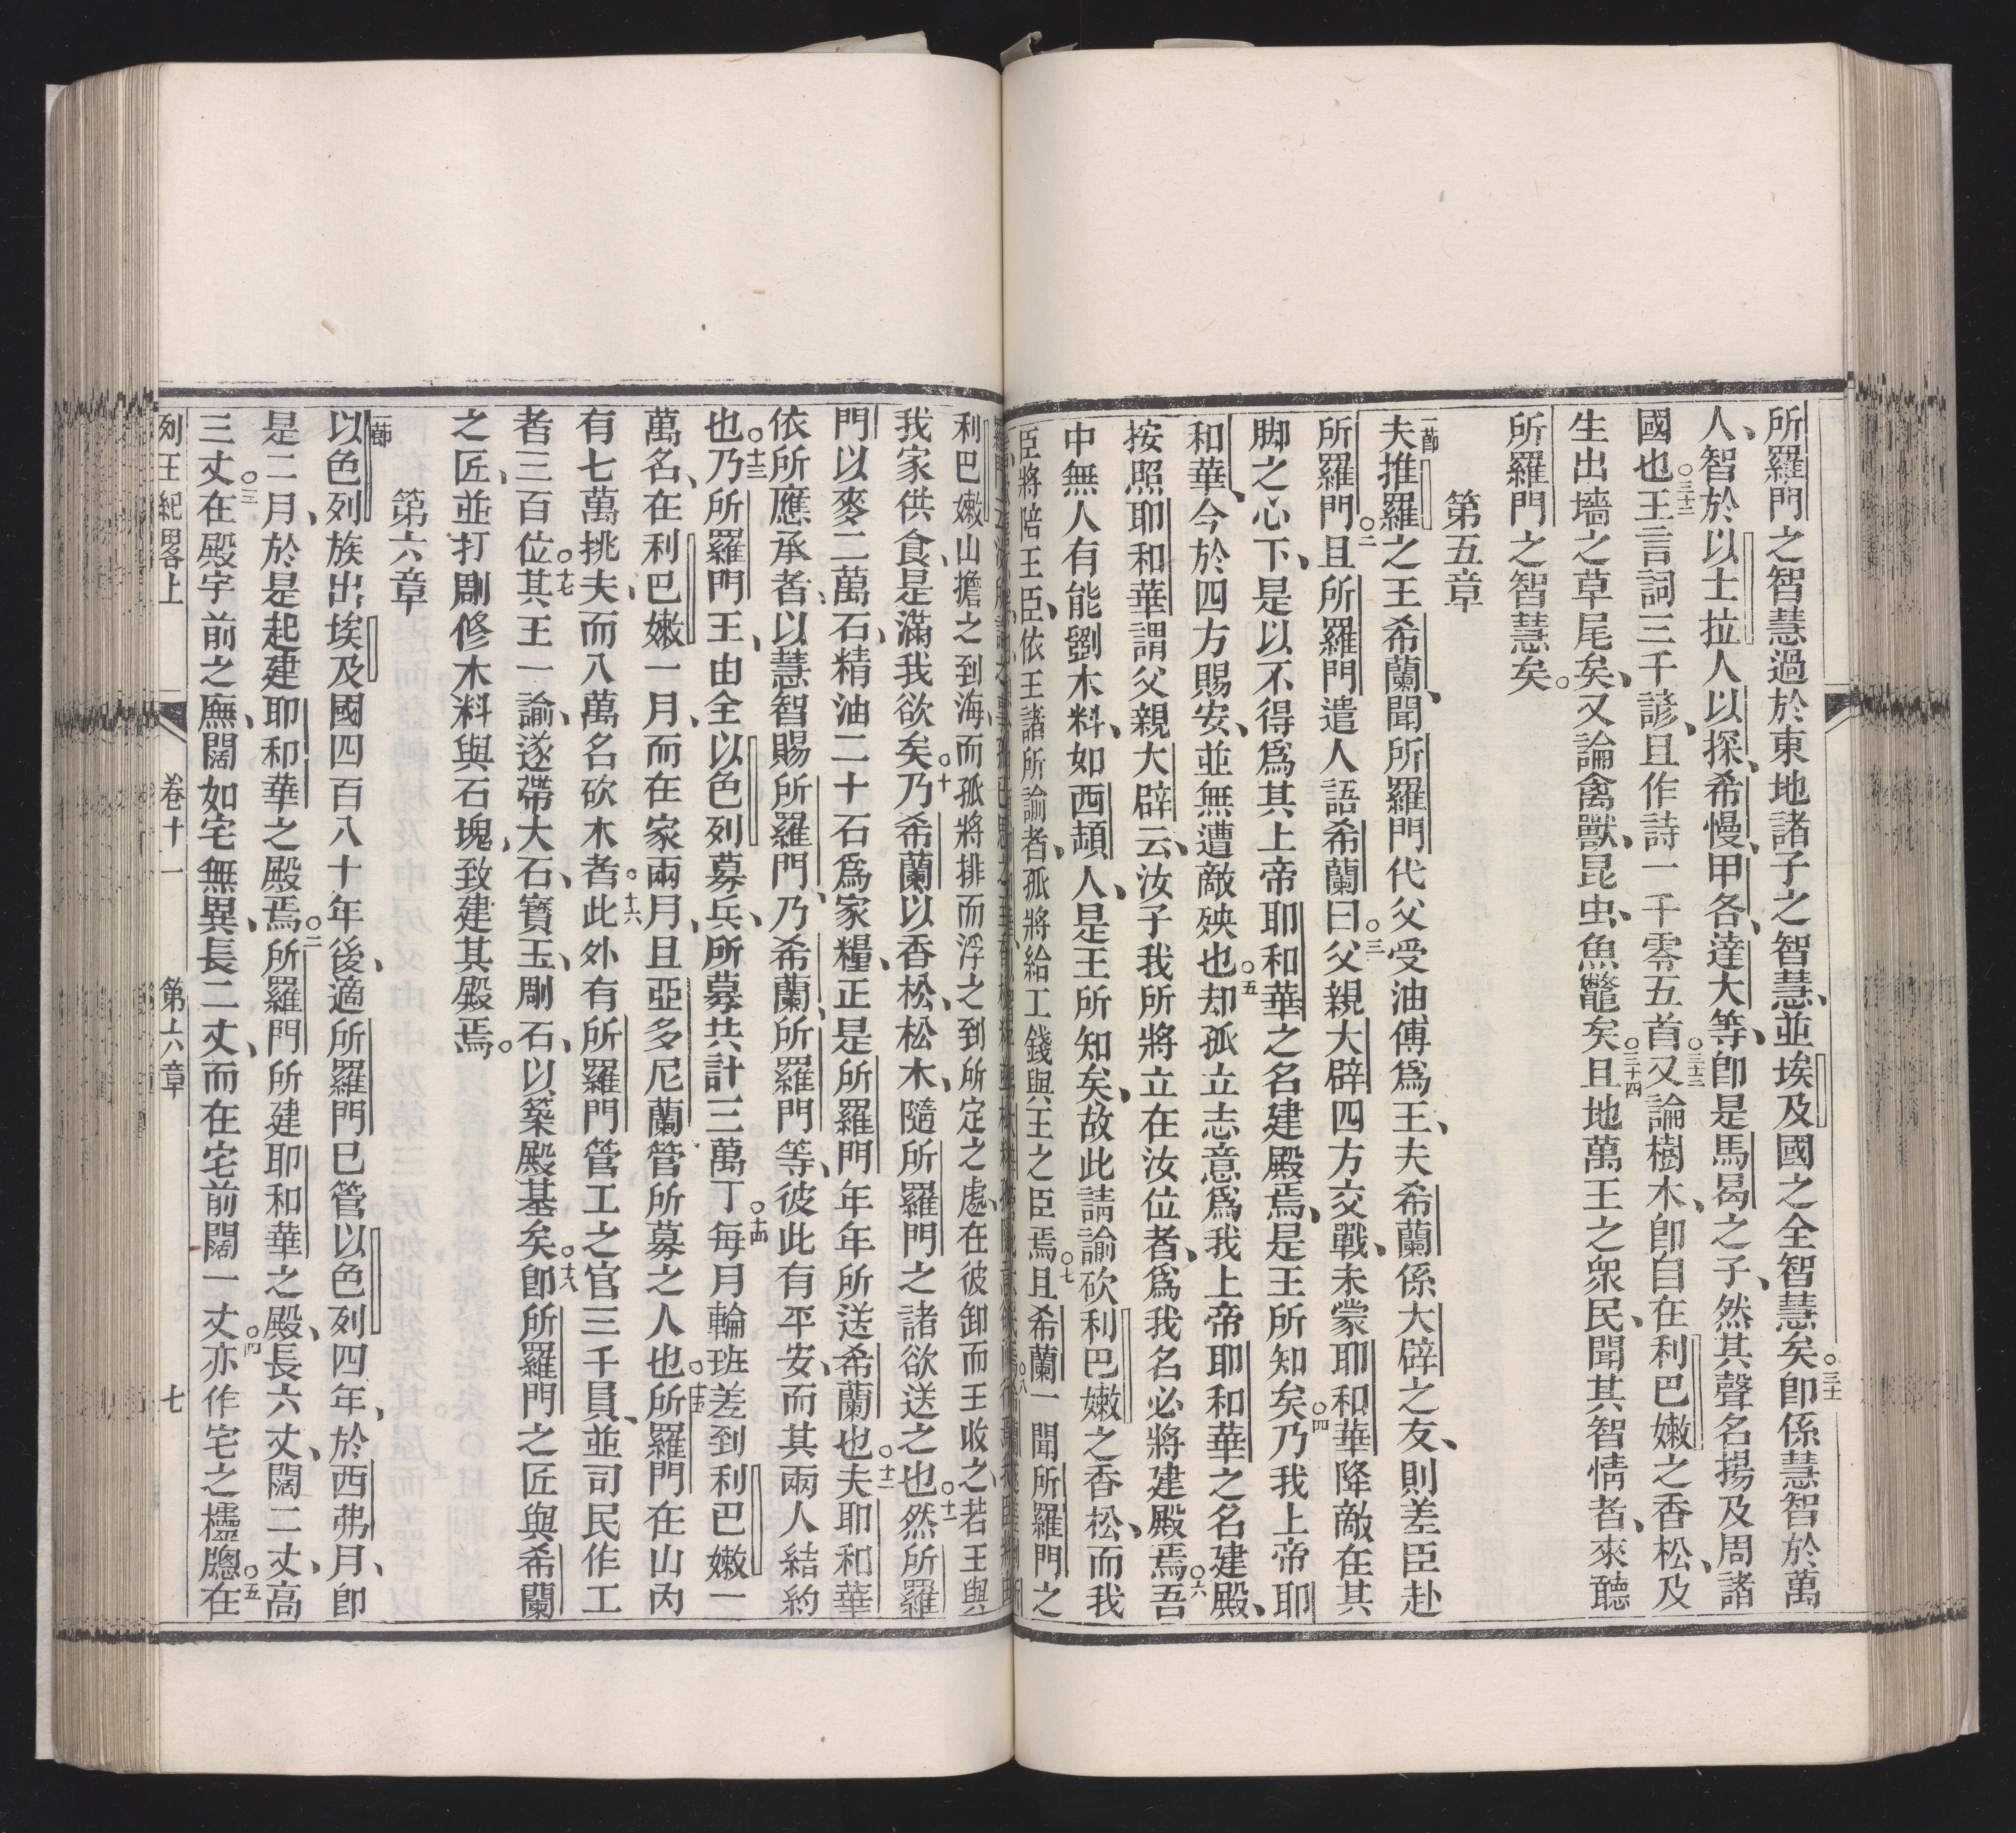 所羅門之智慧過於東地諸子之智慧、並埃及國之全智慧矣。三十即係慧智於萬
人、智於以士拉人以探、希慢、甲各、達大等、即是馬曷之子、然其聲名揚及周諸
國也。三十二王言詞三千諺、且作詩一千零五首。三十三又論樹木、即自在利巴嫩之香松、及
生出墻之草尾矣、又論禽獸、昆虫、魚鼈矣。三十四且地萬王之衆民、聞其智情者、來聽
所羅門之智慧矣。
第五章
一節夫推羅之王希蘭、聞所羅門代父受油傅爲王、夫希蘭係大辟之友、則差臣赴
所羅門。二且所羅門遣人語希蘭曰。三父親大辟四方交戰、未蒙耶和華降敵在其
脚之心下、是以不得爲其上帝耶和華之名建殿焉、是王所知矣。四乃我上帝耶
和華、今於四方賜安、並無遭敵殃也。五却孤立志意爲我上帝耶和華之名建殿、
按照耶和華謂父親大辟云、汝子我所將立在汝位者、爲我名必將建殿焉。六吾
中無人有能劉木料、如西頡人、是王所知矣、故此請諭砍利巴嫩之香松、而我
臣將陪王臣、依王諸所諭者、孤將給工錢與王之臣焉。七且希蘭一聞所羅門之
利巴嫩山擔之到海、而孤將排而浮之到所定之處、在彼卸而王收之、若王與
我家供食、是滿我欲矣。十乃希蘭以香松、松木、隨所羅門之諸欲送之也。十一然所羅
門以麥二萬石、精油二十石爲家糧、正是所羅門年年所送希蘭也。十二夫耶和華
依所應承者、以慧智賜所羅門、乃希蘭、所羅門等、彼此有平安、而其兩人結約
也。十三乃所羅門王、由全以色列募兵、所募共計三萬丁。十四每月輪班差到利巴嫩一
萬名、在利巴嫩一月、而在家兩月、且亞多尼蘭管所募之人也。十五所羅門在山內
有七萬挑夫、而八萬名砍木者。十六此外有所羅門管工之官三千員、並司民作工
者三百位。十七其王一諭、遂帶大石、寶玉、剛石、以築殿基矣。十八即所羅門之匠與希蘭
之匠、並打剛修木料與石塊、致建其殿焉。
第六章
一節以色列族出埃及國四百八十年後、適所羅門巳管以色列四年、於西弗月、即
是二月、於是起建耶和華之殿焉。二所羅門所建耶和華之殿、長六丈、闊二丈、高
三丈。三在殿宇前之廡、闊如宅無異、長二丈、而在宅前闊一丈。四亦作宅之櫺牕。五在
列王紀畧上
卷十一
第六章
七